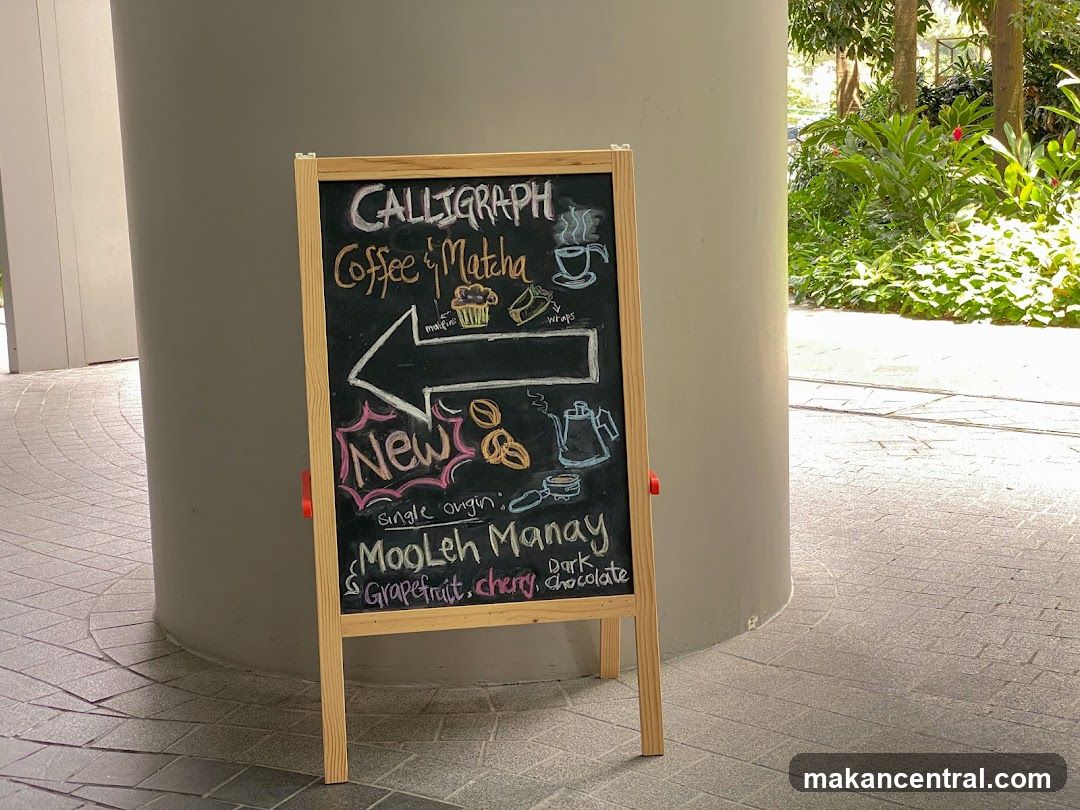 CALLIGRAPH
Coffee & Matcha
muffins
wraps
New
single origin:
MooLeh Manay
Grapefruit, cherry, Dark chocolate
makancentral.com